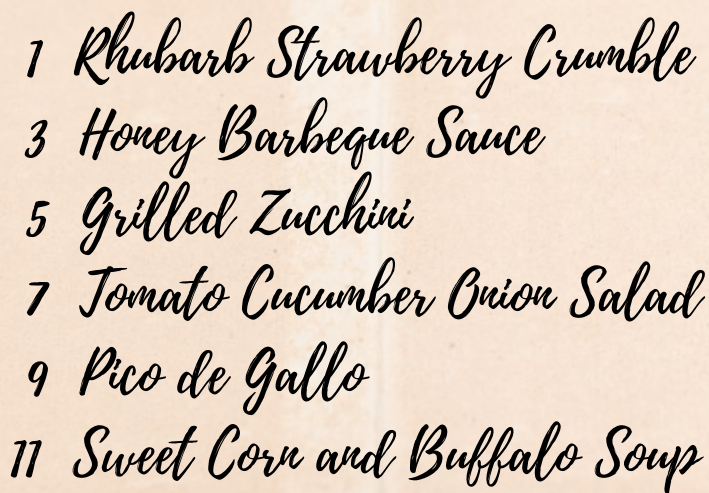 1 Rhubarb Strawberry Crumble
3 Honey Barbeque Sauce
5 Grilled Zucchini
7 Tomato Cucumber Onion Salad
9 Pico de Gallo
11 Sweet Corn and Buffalo Soup